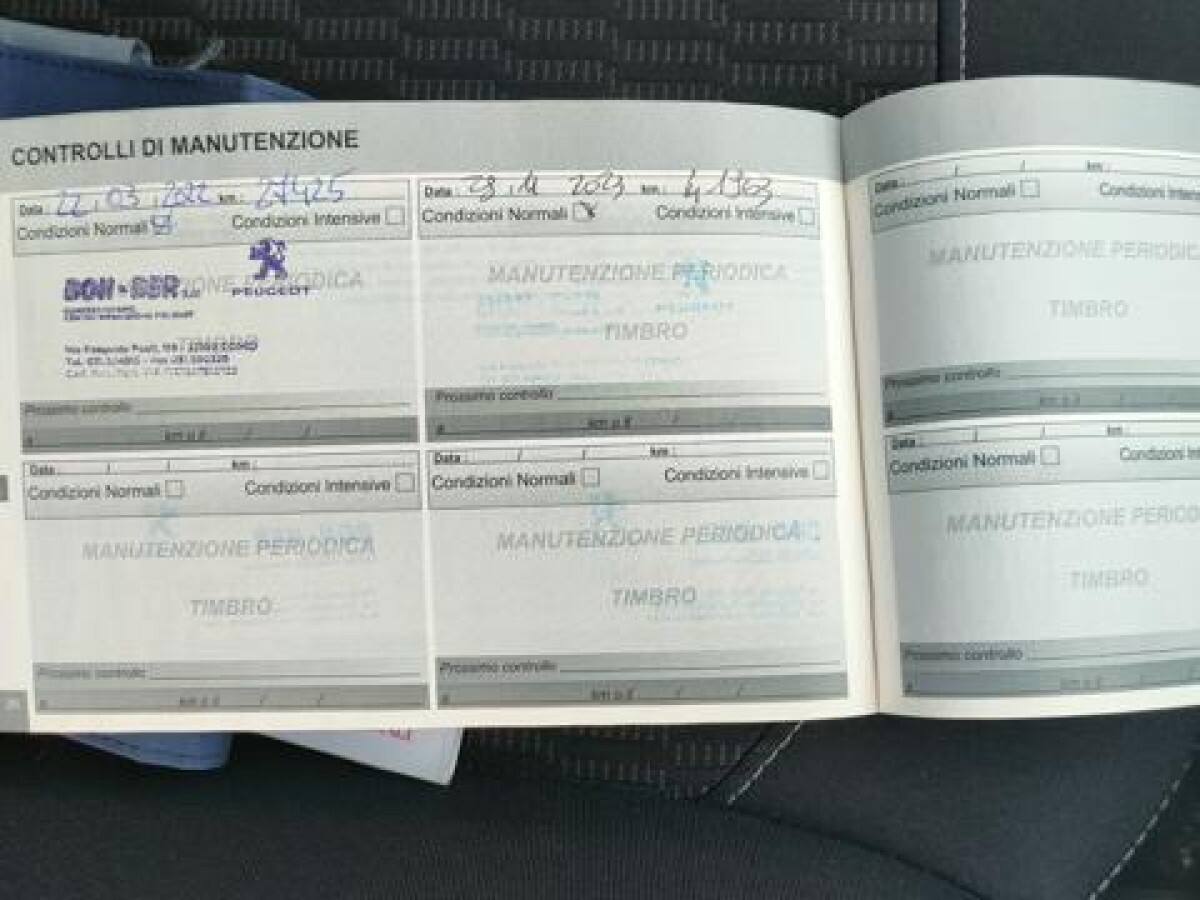 CONTROLLI DI MANUTENZIONE
Data 22 . 03 . 2022 km : 27425
Condizioni Normali Condizioni Intensive
PEUGEOT
BON-BER MANUTENZIONE PERIODICA
Prossimo controllo
a km o il / /
Data : 2023 km : 41903
Condizioni Normali Condizioni Intensive
MANUTENZIONE PERIODICA
TIMBRO
Prossimo controllo
a km o il / /
Data : / / km :
Condizioni Normali Condizioni Intensive
MANUTENZIONE PERIODICA
TIMBRO
Prossimo controllo
a km o il / /
Data : / / km :
Condizioni Normali Condizioni Intensive
MANUTENZIONE PERIODICA
TIMBRO
Prossimo controllo
a km o il / /
Data : / / km :
Condizioni Normali Condizioni
MANUTENZIONE PERIODICA
TIMBRO
Prossimo controllo
a km o il /
Data : / / km :
Condizioni Normali Condizioni
MANUTENZIONE
TIMBRO
Prossimo controllo
a km o il / /